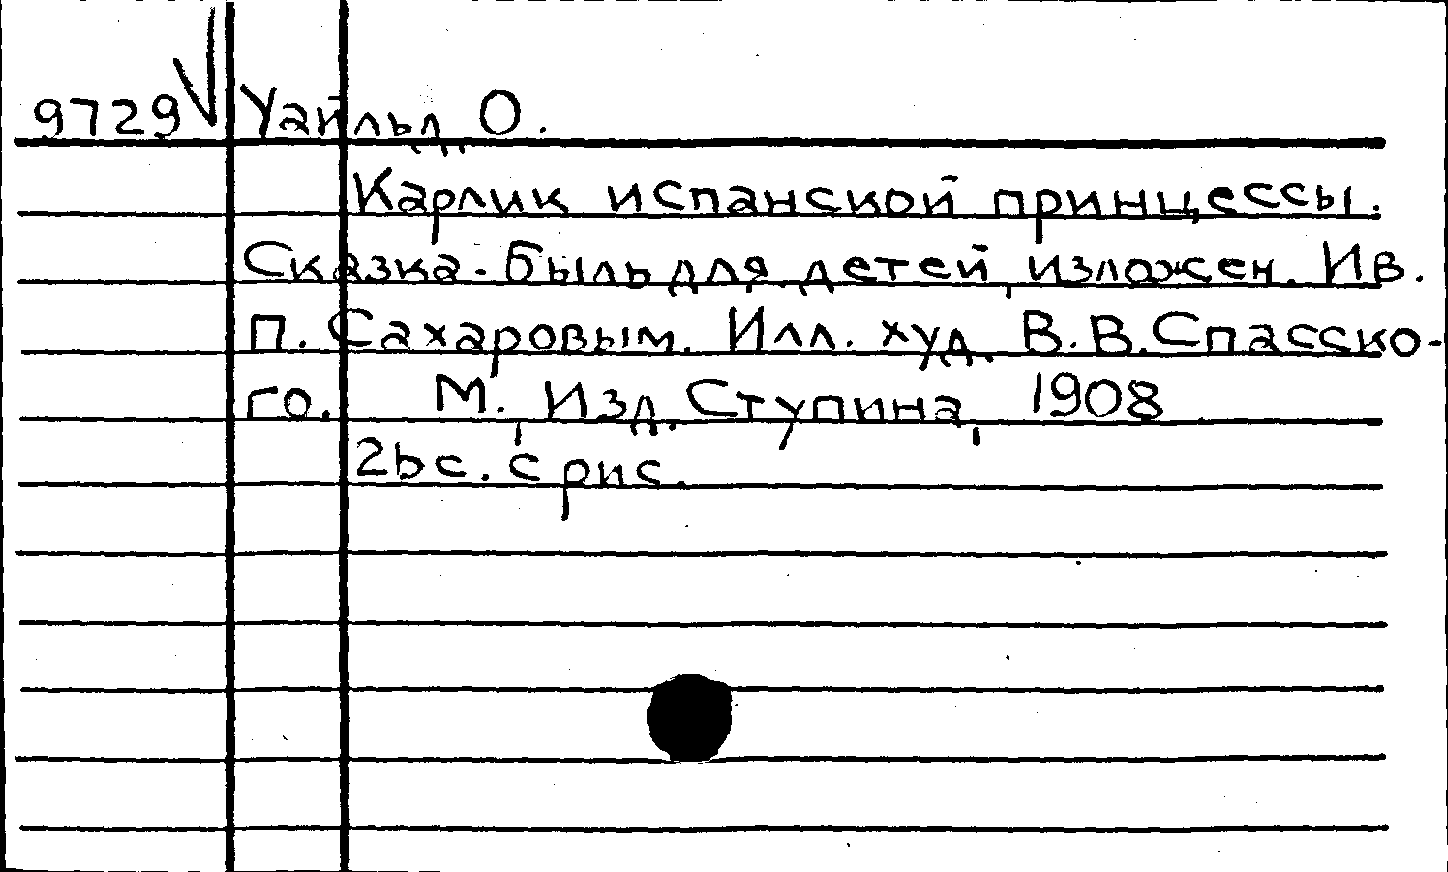 9729 √ Уайльд, О.
Карлик испанской принцессы.
Сказка-быль для детей, изложен. Ив.
П. Сахаровым. Илл. худ. В.В.Спасско-
го. М., Изд. Ступина, 1908
26с. с рис.